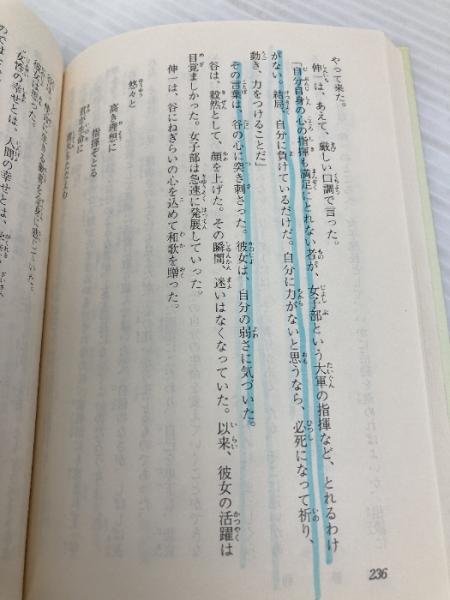 やって来た。
伸一は、あえて、厳しい口調で言った。
「自分自身の心の指揮も満足にとれない者が、女子部という大軍の指揮など、とれるわけ
がない。結局、自分に負けているだけだ。自分に力がないと思うなら、必死になって祈り、
動き、力をつけることだ」
その言葉は、谷の心に突き刺さった。彼女は、自分の弱さに気づいた。
谷は、毅然として、顔を上げた。その瞬間、迷いはなくなっていた。以来、彼女の活躍は
目覚ましかった。女子部は急速に発展していった。
伸一は、谷にねぎらいの心を込めて和歌を贈った。
悠々と
高き理想に
指揮でとる
236
"女性の幸せとは、人間の幸せとは、